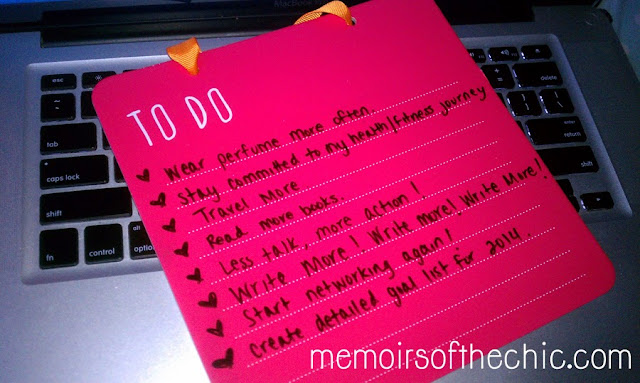 MacBook Pro
TO DO
Wear perfume more often
Stay committed to my health/fitness journey
Travel More
Read more books.
Less talk, more action!
Write More! Write more! Write More!
Start networking again!
create detailed goal list for 2014.
esc
tab
caps lock
shift
fn
control
alt
option
delete
enter
return
shift
memoirsofthechic.com